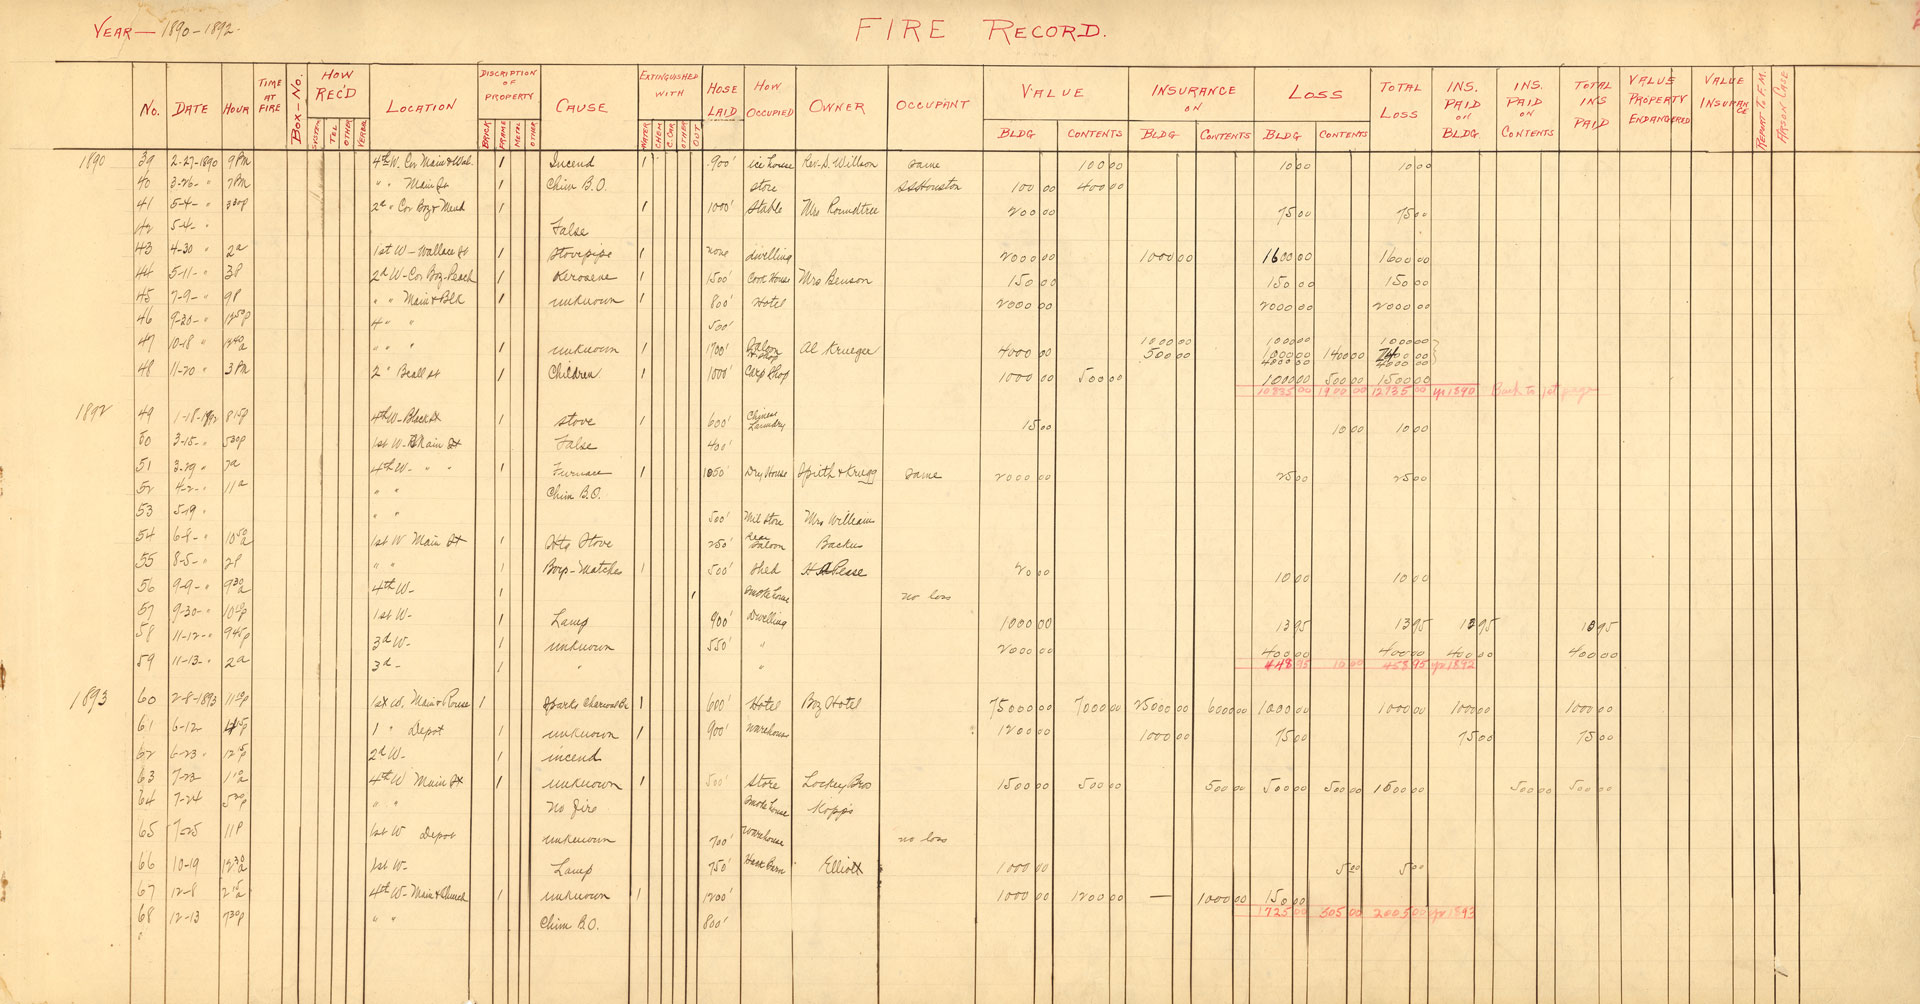 YEAR — 1890-1892.
FIRE RECORD.
No. DATE HOUR TIME AT FIRE BOX-NO. HOW REC'D SYSTEM TEL OTHER VERBAL LOCATION DISCRIPTION OF PROPERTY BRICK FRAME METAL OTHER CAUSE EXTINGUISHED WITH WATER CHEM C.CAR. OTHER OUT HOSE LAID HOW OCCUPIED OWNER OCCUPANT VALUE BLDG CONTENTS INSURANCE ON BLDG CONTENTS LOSS BLDG CONTENTS TOTAL LOSS INS. PAID on BLDG. INS. PAID on CONTENTS TOTAL INS PAID VALUE PROPERTY ENDANGERED VALUE INSURANCE REPORT TO F.M. ARSON CASE
1890 39 2-27-1890 9PM 4th W. Cor Main & Wal. 1 Incend 1 900' ice house Rev. D. Willson same 100 00 10 00 10 00
40 3-26- " 7PM " " Main St 1 Chim B.O. store SS Houston 100 00 400 00
41 5-4- " 330P 2d " Cor Boz & Mend 1 1 1000' Stable Mrs Roundtree 200 00 75 00 75 00
42 5-4- " False
43 4-30 " 2a 1st W- Wallace St 1 Stovepipe 1 none dwelling 2000 00 1000 00 1600 00 1600 00
44 5-11- " 3P 2d W- Cor Boz-Peach 1 Kerosene 1 1500' Cook House Mrs Benson 150 00 150 00 150 00
45 7-9- " 9P " " Main & Blk 1 unknown 1 800' Hotel 2000 00 2000 00 2000 00
46 9-20- " 1250P 4 " " 500'
47 10-18 " 1240a " " " 1 unknown 1 1700' Saloon Al Krueger 4000 00 1000 00 500 00 1000 00 1000 00 4000 00 1400 00 1000 00 2400 00 4000 00
48 11-20 " 3PM 2 " Beall St 1 Children 1 1000' Carp Shop 1000 00 500 00 1000 00 500 00 1500 00
10835 00 1900 00 12735 00 yr 1890 Back to 1st page
1892 49 1-18-1892 815P 4th W- Black St 1 stove 1 600' Chinese Laundry 15 00 10 00 10 00
50 3-15- " 530P 1st W- Main St False 400'
51 3-29 " 7a 4th W- " " 1 Furnace 1 1050' Dry House Spieth & Krugg same 2000 00 25 00 25 00
52 4-2- " 11a " " Chim B.O.
53 5-19 " " " 500' Mil Store Mrs William
54 6-8- " 1050a 1st W Main St 1 Stove 250' Rear Saloon Backus
55 8-5- " 2P " " 1 Boys- Matches 1 500' Shed H A Pease 20 00 10 00 10 00
56 9-9- " 930a 4th W- 1 1 smoke house no loss
57 9-30- " 1st W- 1 Lamp 900' Dwelling 1000 00 13 95 13 95 13 95 13 95
58 11-12- " 945P 3d W- 1 unknown 550' " 2000 00 400 00 400 00 400 00 400 00
59 11-13- " 2a 3d - 1 " "
448 95 10 00 458 95 yr 1892
1893 60 2-8-1893 1st W. Main & Rouse 1 600' Hotel Boz Hotel 75000 00 7000 00 25000 00 6000 00 1000 00 1000 00 1000 00 1000 00
61 6-12 415P 1 " Depot 1 unknown 1 900' warehouse 1200 00 1000 00 75 00 75 00 75 00
62 6-23 " 1215P 2d W- 1 incend
63 7-23 4th W Main St 1 unknown 1 500' store Lockey Bros 1500 00 500 00 500 00 500 00 500 00 1000 00 500 00 500 00
64 7-24 530P " " No fire smoke house Kopps
65 7-25 11P 1st W Depot unknown 700' warehouse no loss
66 10-19 1230a 1st W- 1 Lamp 750' Elliott 1000 00 5 00 5 00
67 12-8 215a 4th W- Main & Church 1 unknown 1 1200' 1000 00 1200 00 — 1000 00 150 00
68 12-13 730P " " Chim B.O. 800'
1725 00 505 00 2005 00 yr 1893